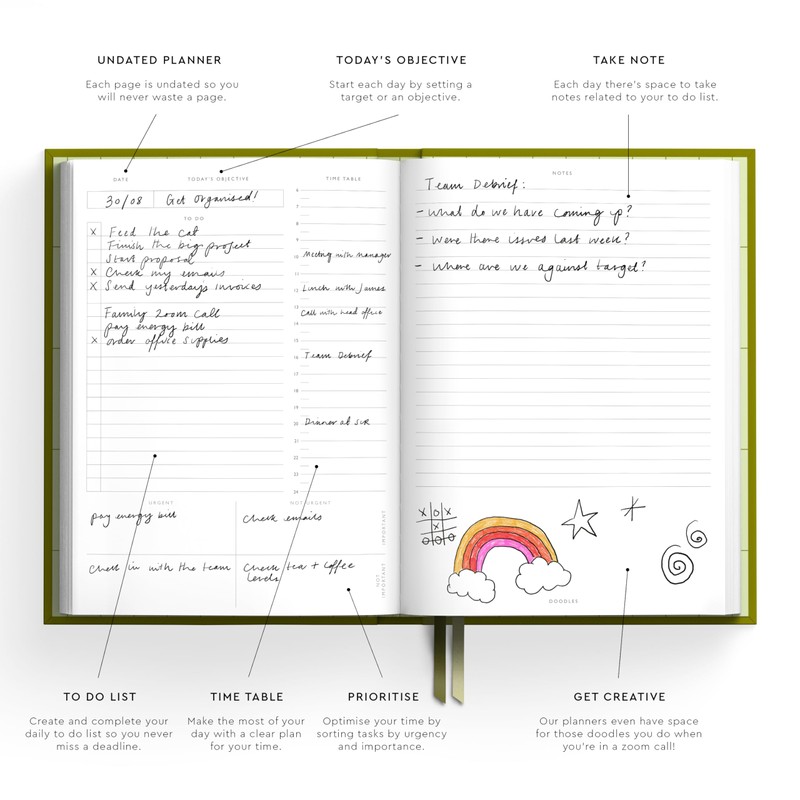 UNDATED PLANNER
Each page is undated so you
will never waste a page.
TODAY'S OBJECTIVE
Start each day by setting a
target or an objective.
TAKE NOTE
Each day there's space to take
notes related to your to do list.
DATE
TODAY'S OBJECTIVE
30/08
Get Organised!
TO DO
X Feed the cat
Finish the big project
Start proposal
X Check my emails
X Send yesterday's invoices
Family Zoom Call
pay energy bill
X order office supplies
TIME TABLE
6
7
8
9
10 Meeting with manager
11
12 Lunch with James
13 Call with head office
14
15
16 Team Debrief
17
18
19
20 Dinner at
21
22
23
24
URGENT
NOT URGENT
pay energy bill
Check emails
IMPORTANT
Check in with the team
Check tea + coffee
levels
NOT
IMPORTANT
NOTES
Team Debrief:
- what do we have coming up?
- were there issues last week?
- where are we against target?
X O X
X
O O O
DOODLES
TO DO LIST
Create and complete your
daily to do list so you never
miss a deadline.
TIME TABLE
Make the most of your
day with a clear plan
for your time.
PRIORITISE
Optimise your time by
sorting tasks by urgency
and importance.
GET CREATIVE
Our planners even have space
for those doodles you do when
you're in a zoom call!